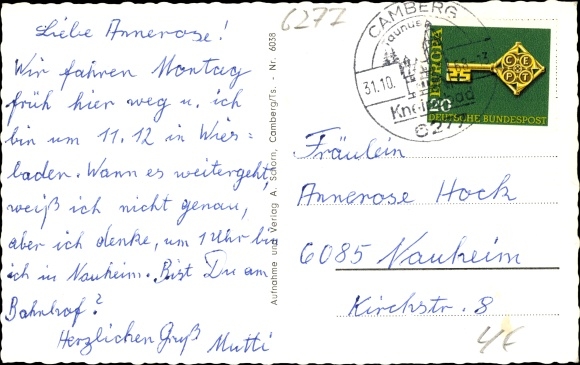 Liebe Annerose!
Wir fahren Montag
früh hier weg u. ich
bin um 11.12 in Wies-
baden. Wann es weitergeht,
weiß ich nicht genau,
aber ich denke, um 1 Uhr bin
ich in Nauheim. Bist Du am
Bahnhof?
Herzlichen Gruß
Mutti
Aufnahme und Verlag A. Schorn, Camberg/Ts. - Nr. 6038
6277
CAMBERG
Taunus
31.10.
Kneippbad
6277
EUROPA
CEPT
20
DEUTSCHE BUNDESPOST
Fräulein
Annerose Hock
6085 Nauheim
Kirchstr. 8